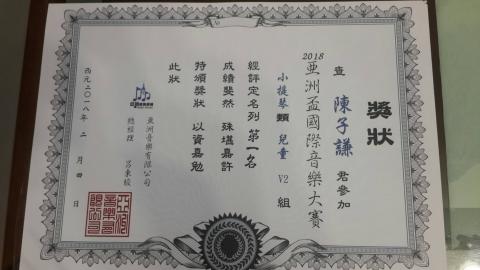 獎狀
查 陳子謙 君參加
2018 亞洲盃國際音樂大賽
小提琴類 兒童 V2 組
經評定名列 第一名
成績斐然 殊堪嘉許
特頒獎狀 以資嘉勉
此狀
亞洲音樂有限公司
總經理 呂東駿
西元二〇一八年 二 月 四 日